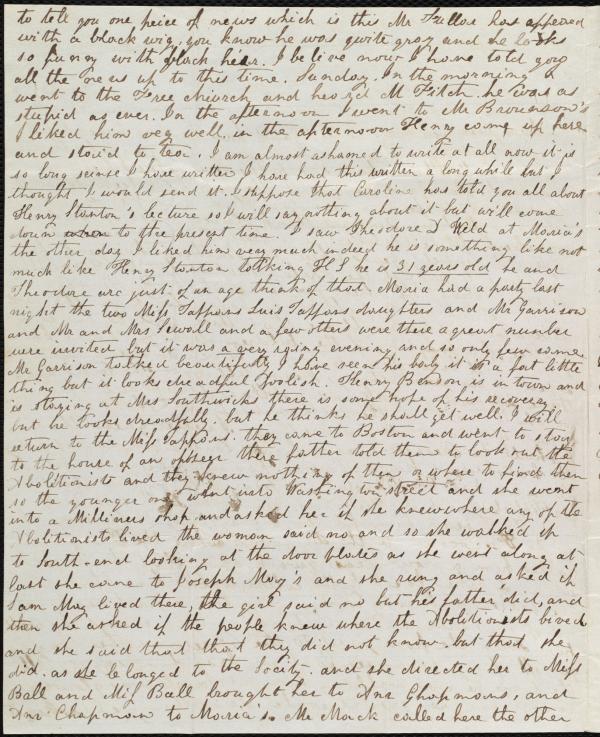 to tell you one peice of news which is this Mr Fuller has appeared
with a black wig, you know he was quite gray and he looks
so funny with black hair. I believe now I have told you
all the news up to this time. Sunday. In the morning I
went to the Free church and heard M Fitch. he was as
stupid as ever. In the afternoon I went to Mr Brownson's
I liked him very well, in the afternoon Henry came up here
and staid to tea. I am almost ashamed to write at all now it is
so long seinse I have written I have had this written a long while but I
thought I would send it. I suppose that Caroline has told you all about
Henry Stanton's lecture so I will say nothing about it but will come
down when to the present time. I saw Theodore D Weld at Maria's
the other day I liked him very much indeed he is something like not
much like Henry Stanton talking H S he is 31 years old he and
Theodore are just of an age think of that. Maria had a party last
night the two Miss Tappans Luis Tappans daughters and Mr Garrison
and Mr and Mrs Sewall and a few others were there a great number
were invited but it was a very rainy evening and so only few came
Mr Garrison talked beautifully I have seen his baby it is a fat little
thing but it looks dreadful foolish. Henry Benson is in town and
is staying at Mrs Southwicks there is some hope of his recovery
but he looks dreadfully. but he thinks he shall get well. I will
return to the Miss Tappans. they came to Boston and went to stay
to the house of an there father told them to look out the
Abolitionists and they knew nothing of them or where to find them
so the younger one went into Washington street and she went
into a Milliners shop and asked her if she knew where any of the
Abolitionists lived the woman said no and so she walked up
to South-end looking at the door plates as she went along at
last she came to Joseph May's and she rung and asked if
Sam May lived there, the girl said no but his father did, and
then she asked if the people knew where the Abolitionists lived
and she said that that they did not know. but that she
did. as she belonged to the Socity. and she directed her to Miss
Ball and Miss Ball brought her to Ann Chapmans, and
Ann Chapman to Maria's. Mr Mack called here the other